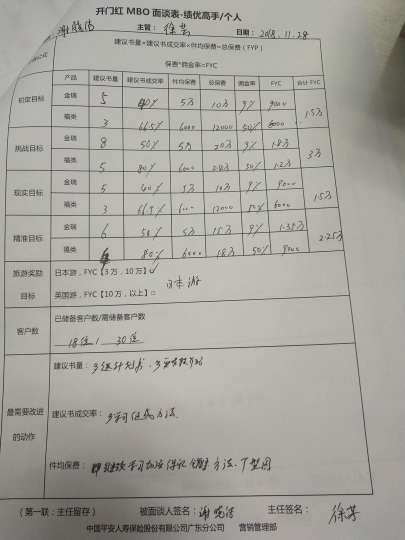 开门红 MBO 面谈表-绩优高手/个人
主管： 日期：2018.11.28
建议书量*建议书成交率*件均保费=总保费（FYP）
保费*佣金率=FYC
产品 建议书量 建议书成交率 件均保费 总保费 佣金率 FYC 合计 FYC
初定目标 金瑞 5 40% 5万 10万 9% 9000 1.5万
福类 3 66.5% 6000 12000 50% 6000
挑战目标 金瑞 8 50% 5万 20万 9% 1.8万 3万
福类 5 80% 6000 2.4万 50% 1.2万
现实目标 金瑞 5 40% 5万 10万 9% 9000 1.5万
福类 3 66.5% 6000 12000 50% 6000
精准目标 金瑞 6 50% 5万 15万 9% 1.35万 2.25万
福类 80% 6000 1.8万 50% 9000
旅游奖励 日本游，FYC【3万，10万】
日本游
目标 英国游，FYC【10万，以上】□
客户数 已储备客户数/需储备客户数
18位 / 30位
建议书量：
最需要改进 建议书成交率：多学习 方法
的动作
件均保费：
（第一联：主任留存） 被面谈人签名： 主任签名：
中国平安人寿保险股份有限公司广东分公司 营销管理部